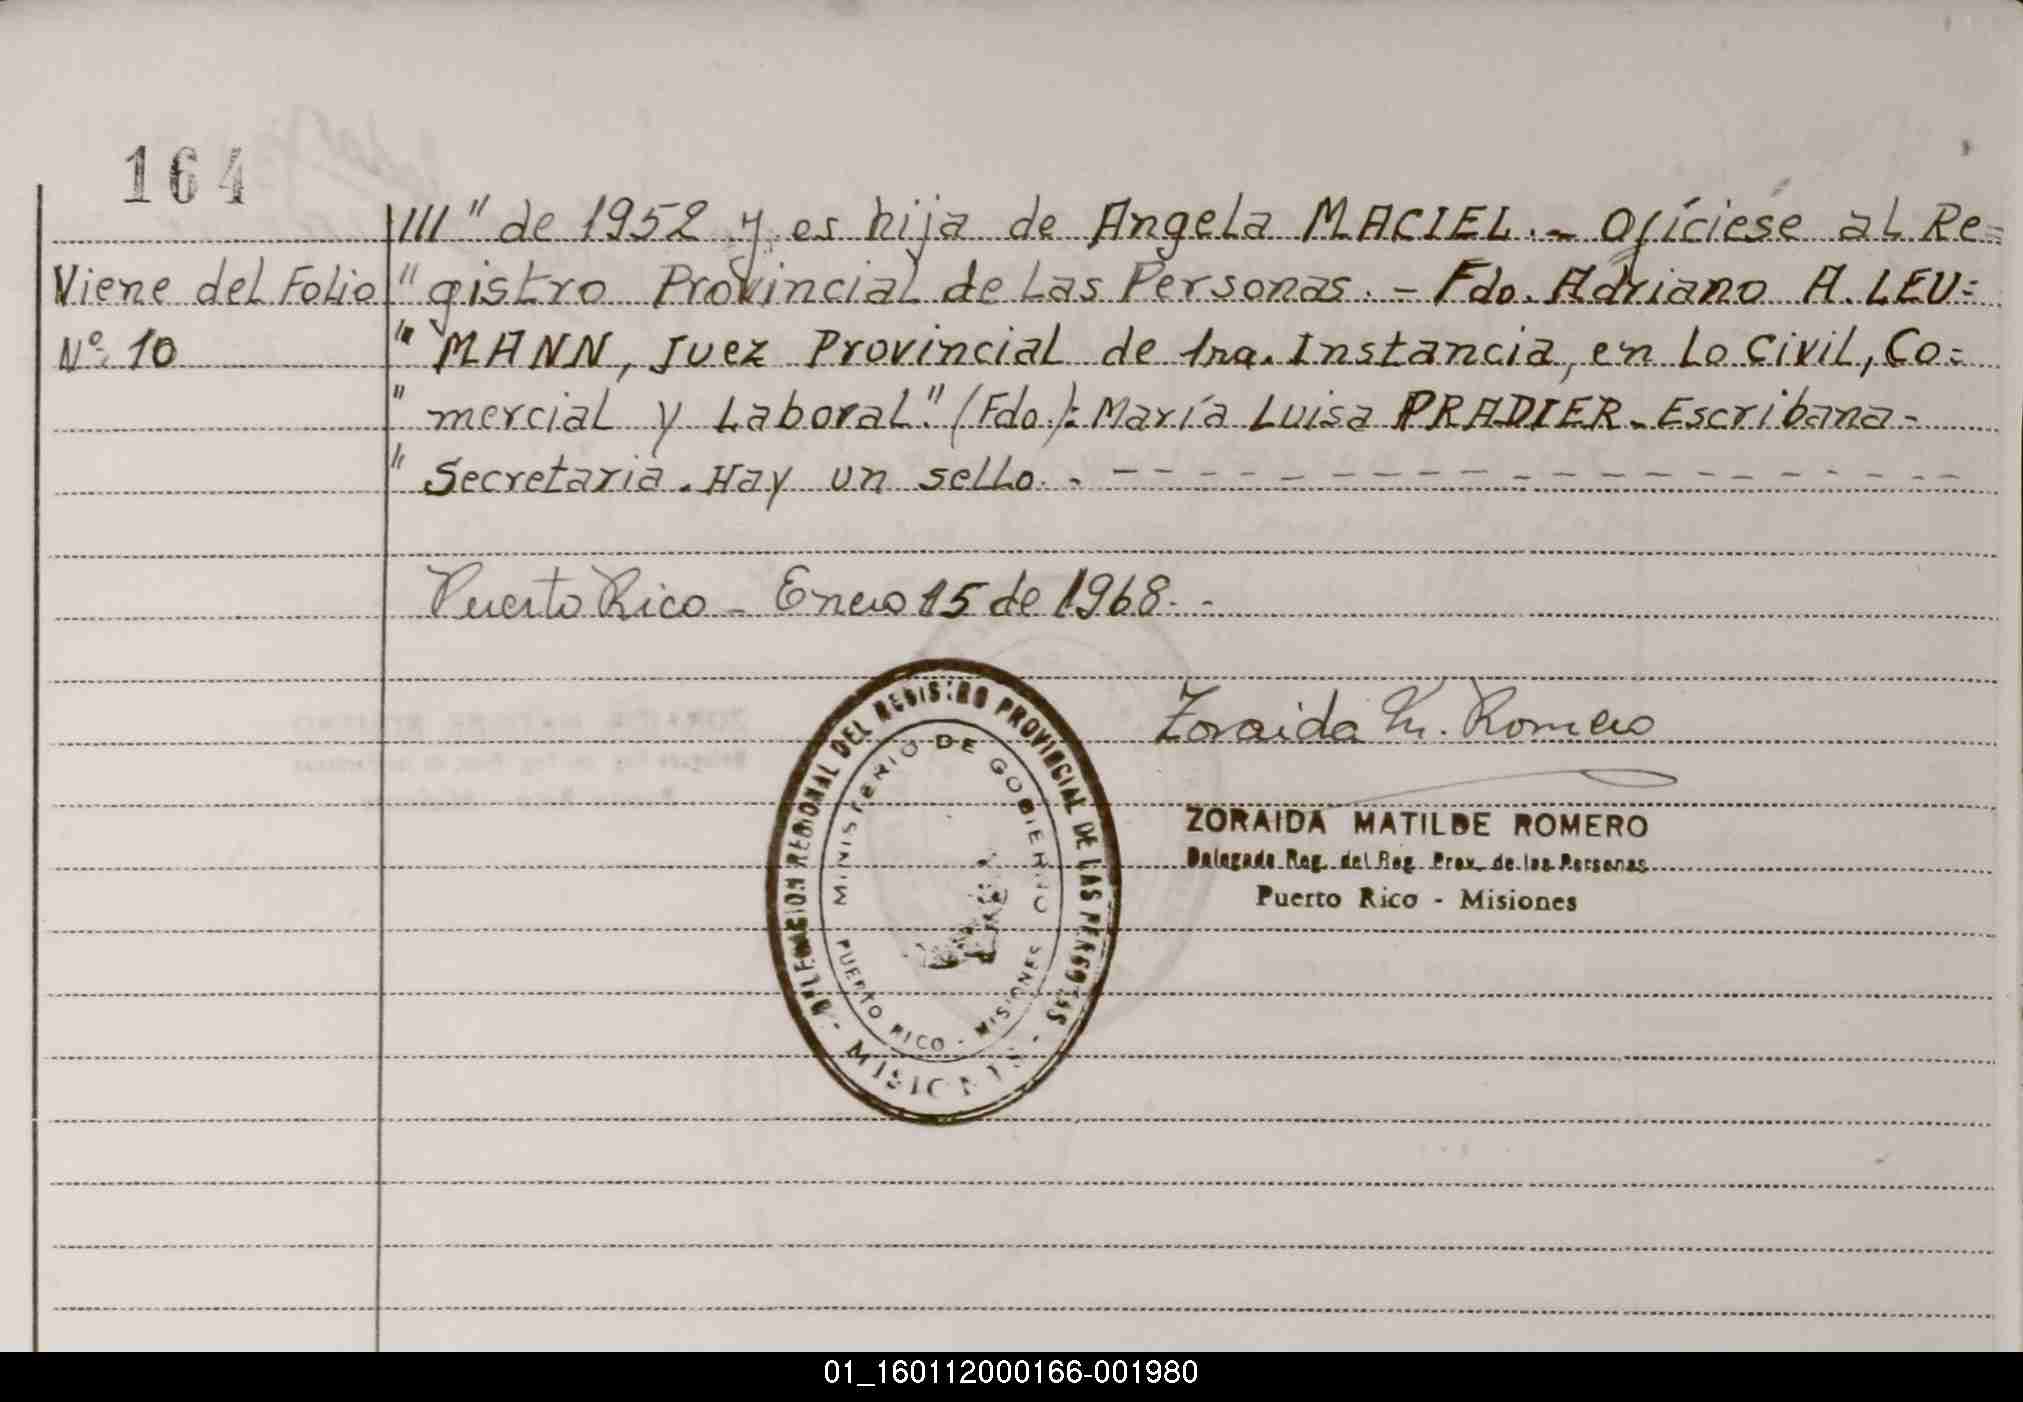 164
III" de 1952 y es hija de Angela MACIEL.- Ofíciese al Re=
Viene del Folio
" gistro Provincial de Las Personas.- Fdo. Adriano A. LEU=
Nº 10
" MANN, Juez Provincial de 1ra. Instancia, en Lo Civil, Co=
" mercial y Laboral." (Fdo.): María Luisa PRADIER. Escribana-
" Secretaria. Hay un sello.-
Puerto Rico - Enero 15 de 1968.-
DELEGACION REGIONAL DEL REGISTRO PROVINCIAL DE LAS PERSONAS
- MISIONES -
MINISTERIO DE GOBIERNO
PUERTO RICO - MISIONES
Zoraida M. Romero
ZORAIDA MATILDE ROMERO
Delegada Reg. del Reg. Prov. de las Personas
Puerto Rico - Misiones
01_160112000166-001980